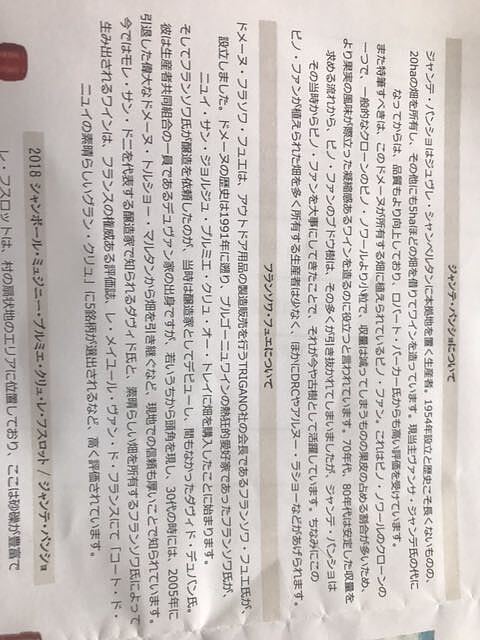 ジャンテ・パンショについて
ジャンテ・パンショはジュヴレ・シャンベルタンに本拠地を置く生産者。1954年設立と歴史こそ長くないものの、
20haの畑を所有し、その他にも5haほどの畑を借りてワインを造っています。現当主ヴァンサ・ジャンテ氏の代に
なってからは、品質もより向上しており、ロバート・パーカー氏からも高い評価を受けています。
また特筆すべきは、このドメーヌが所有する畑に植えられているピノ・ファン。これはピノ・ノワールのクローンの
一つで、一般的なクローンのピノ・ノワールより小粒で、収量は減ってしまうものの果皮の占める割合が多いため、
より果実の風味が際立った凝縮感あるワインを造るのに役立つと言われています。70年代、80年代は安定した収量を
求める流れから、ピノ・ファンのブドウ樹は、その多くが引き抜かれてしまいましたが、ジャンテ・パンショは
その当時からピノ・ファンを大事にしてきたことで、それが今や古樹として活躍しています。ちなみにこの
ピノ・ファンが植えられた畑を多く所有する生産者は少なく、ほかにDRCやアルヌー・ラショーなどがあげられます。
フランソワ・フュエについて
ドメーヌ・フランソワ・フュエは、アウトドア用品の製造販売を行うTRIGANO社の会長であるフランソワ・フュエ氏が、
設立しました。ドメーヌの歴史は1991年に遡り、ブルゴーニュワインの熱狂的愛好家であったフランソワ氏が、
ニュイ・サン・ジョルジュ・プルミエ・クリュ・オー・トレイに畑を購入したことに始まります。
そしてフランソワ氏が醸造を依頼したのが、当時は醸造家としてデビューし、間もなかったダヴィド・デュバン氏。
彼は生産者共同組合の一員であるデュヴァン家の出身ですが、若いうちから頭角を現し、30代の時には、2005年に
引退した偉大なドメーヌ・トルショー・マルタンから畑を引き継ぐなど、現地での信頼も厚いことで知られています。
今ではモレ・サン・ドニを代表する醸造家で知られるダヴィド氏と、素晴らしい畑を所有するフランソワ氏によって
生み出されるワインは、フランスの権威ある評価誌、レ・メイユール・ヴァン・ド・フランスにて「コート・ド・
ニュイの素晴らしいグラン・クリュ」に5銘柄が選出されるなど、高く評価されています。
2018 シャンボール・ミュジニー・プルミエ・クリュ・レ・フスロット / ジャンテ・パンショ
レ・フスロットは、村の扇状地のエリアに位置しており、ここは砂礫が豊富で